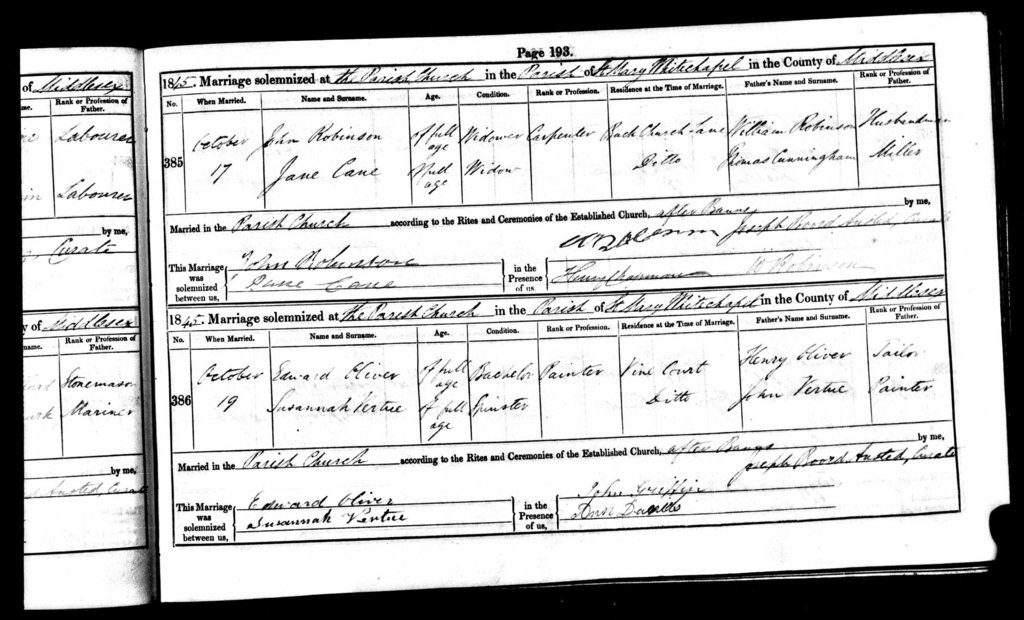 Page 193.
of Middlesex
Rank or Profession of Father.
Labourer
Labourer
by me,
Curate
y of Middlesex
name.
Rank or Profession of Father.
Stonemason
Mariner
by me,
Ansted, Curate
1845. Marriage solemnized at the Parish Church in the Parish of St Mary Whitechapel in the County of Middlesex
No. When Married. Name and Surname. Age. Condition. Rank or Profession. Residence at the Time of Marriage. Father's Name and Surname. Rank or Profession of Father.
385 October 17 John Robinson of full age Widower Carpenter Back Church Lane William Robinson Husbandman
Jane Cane of full age Widow Ditto Thomas Cunningham Miller
Married in the Parish Church according to the Rites and Ceremonies of the Established Church, after Banns by me,
Joseph Boord Ansted, Curate
This Marriage was solemnized between us, John Robinson
Jane Cane
in the Presence of us, Henry Chapman W Robinson
1845. Marriage solemnized at the Parish Church in the Parish of St Mary Whitechapel in the County of Middlesex
No. When Married. Name and Surname. Age. Condition. Rank or Profession. Residence at the Time of Marriage. Father's Name and Surname. Rank or Profession of Father.
386 October 19 Edward Oliver of full age Bachelor Painter Vine Court Henry Oliver Tailor
Susannah Vertue of full age Spinster Ditto John Vertue Painter
Married in the Parish Church according to the Rites and Ceremonies of the Established Church, after Banns by me,
Joseph Boord Ansted, Curate
This Marriage was solemnized between us, Edward Oliver
Susannah Vertue
in the Presence of us, John Griffin
Ann Daniels